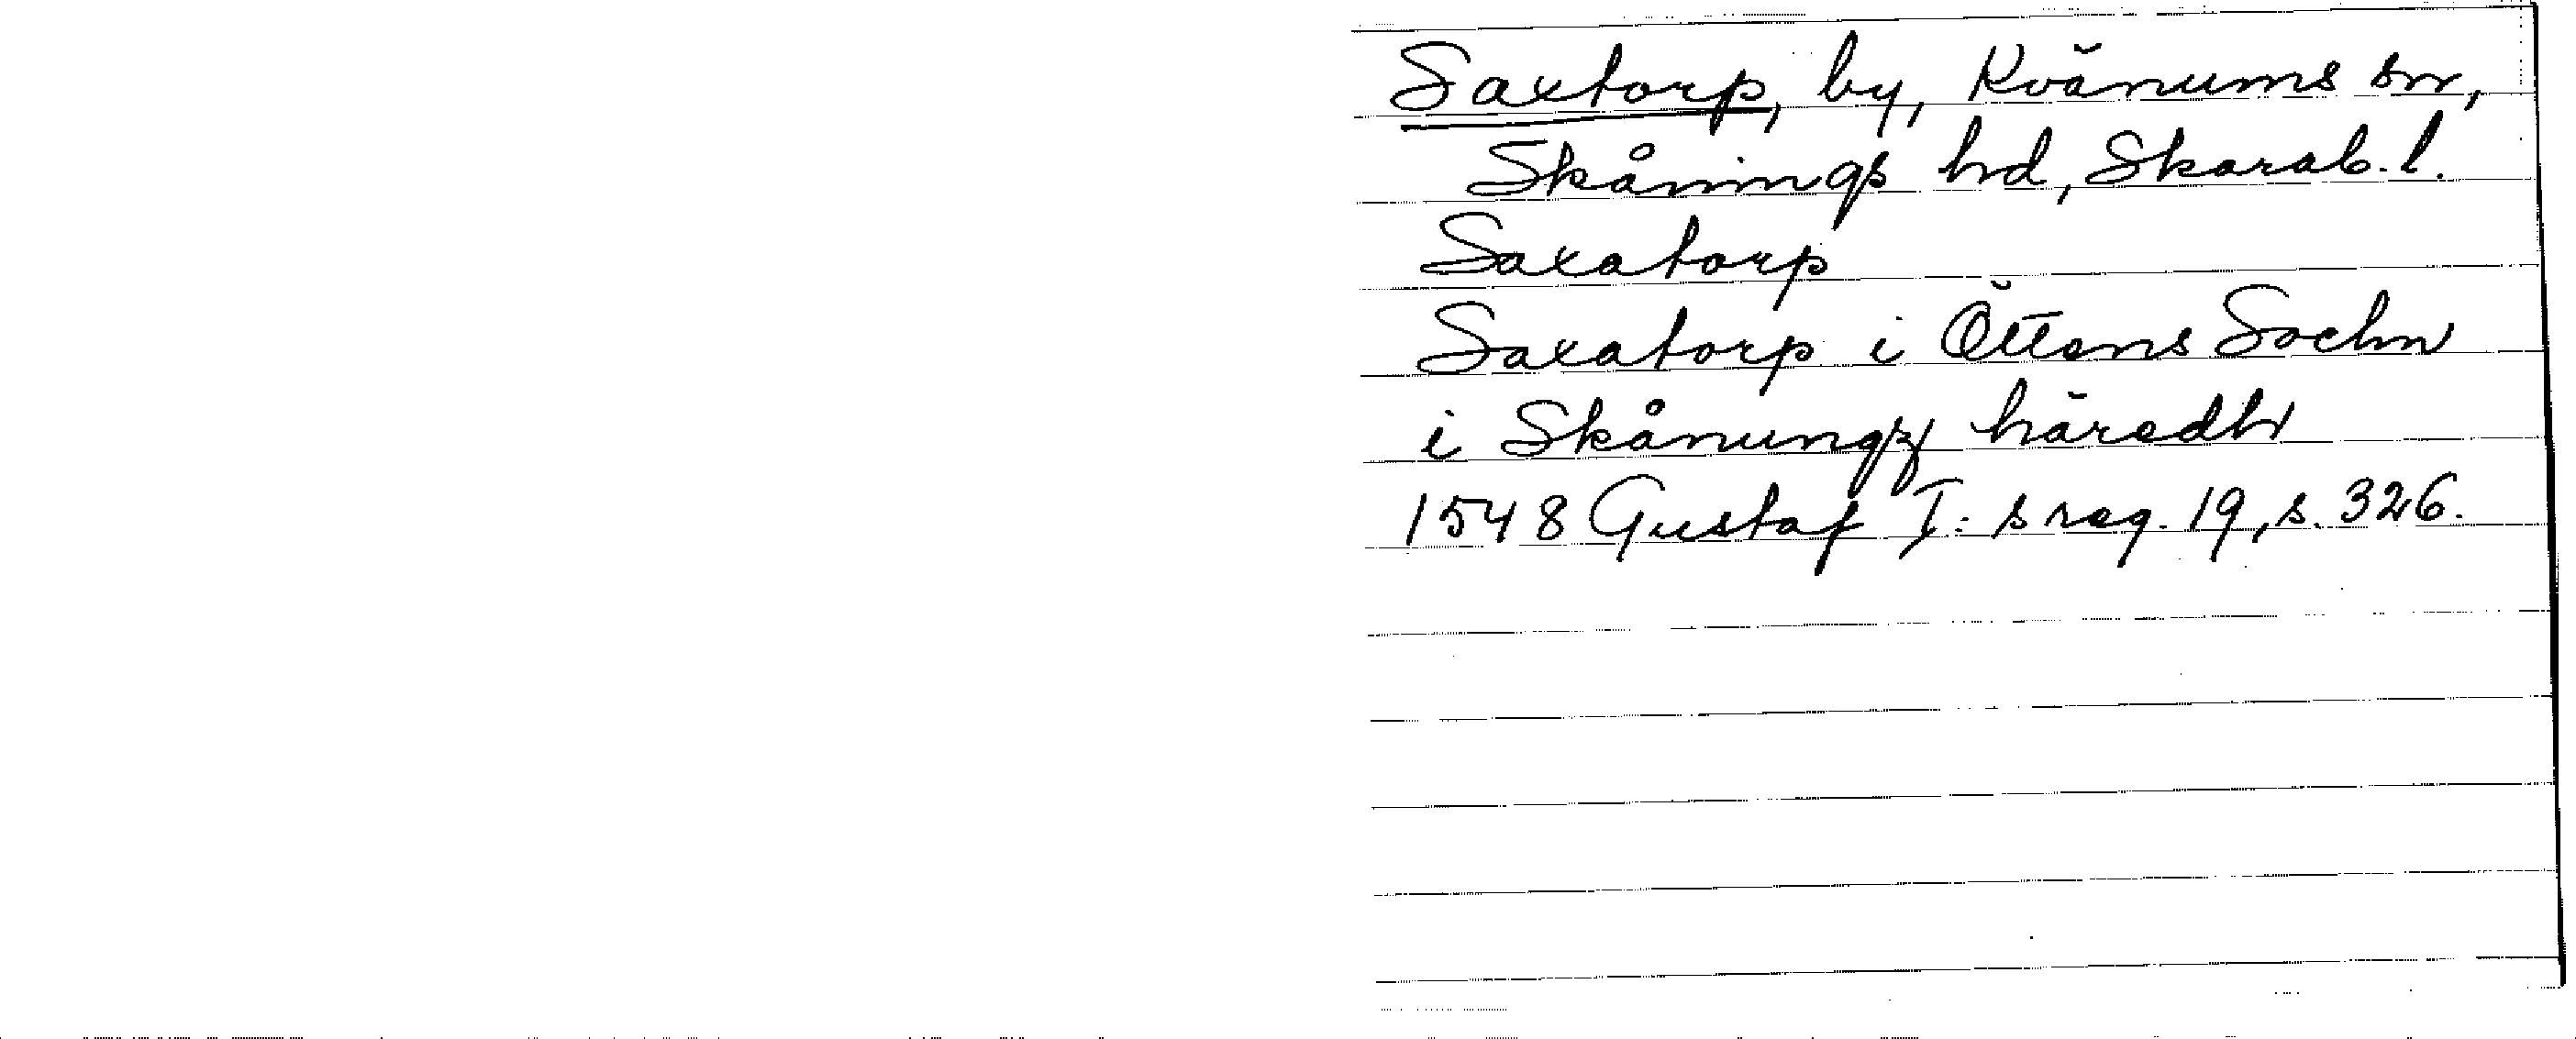 Saxtorp, by, Kvänums sn,
Skånings hd, Skarab. l.
Saxatorp
Saxatorp i Öttens Sochn
i Skånungz häredh
1548 Gustaf I:s reg. 19, s. 326.